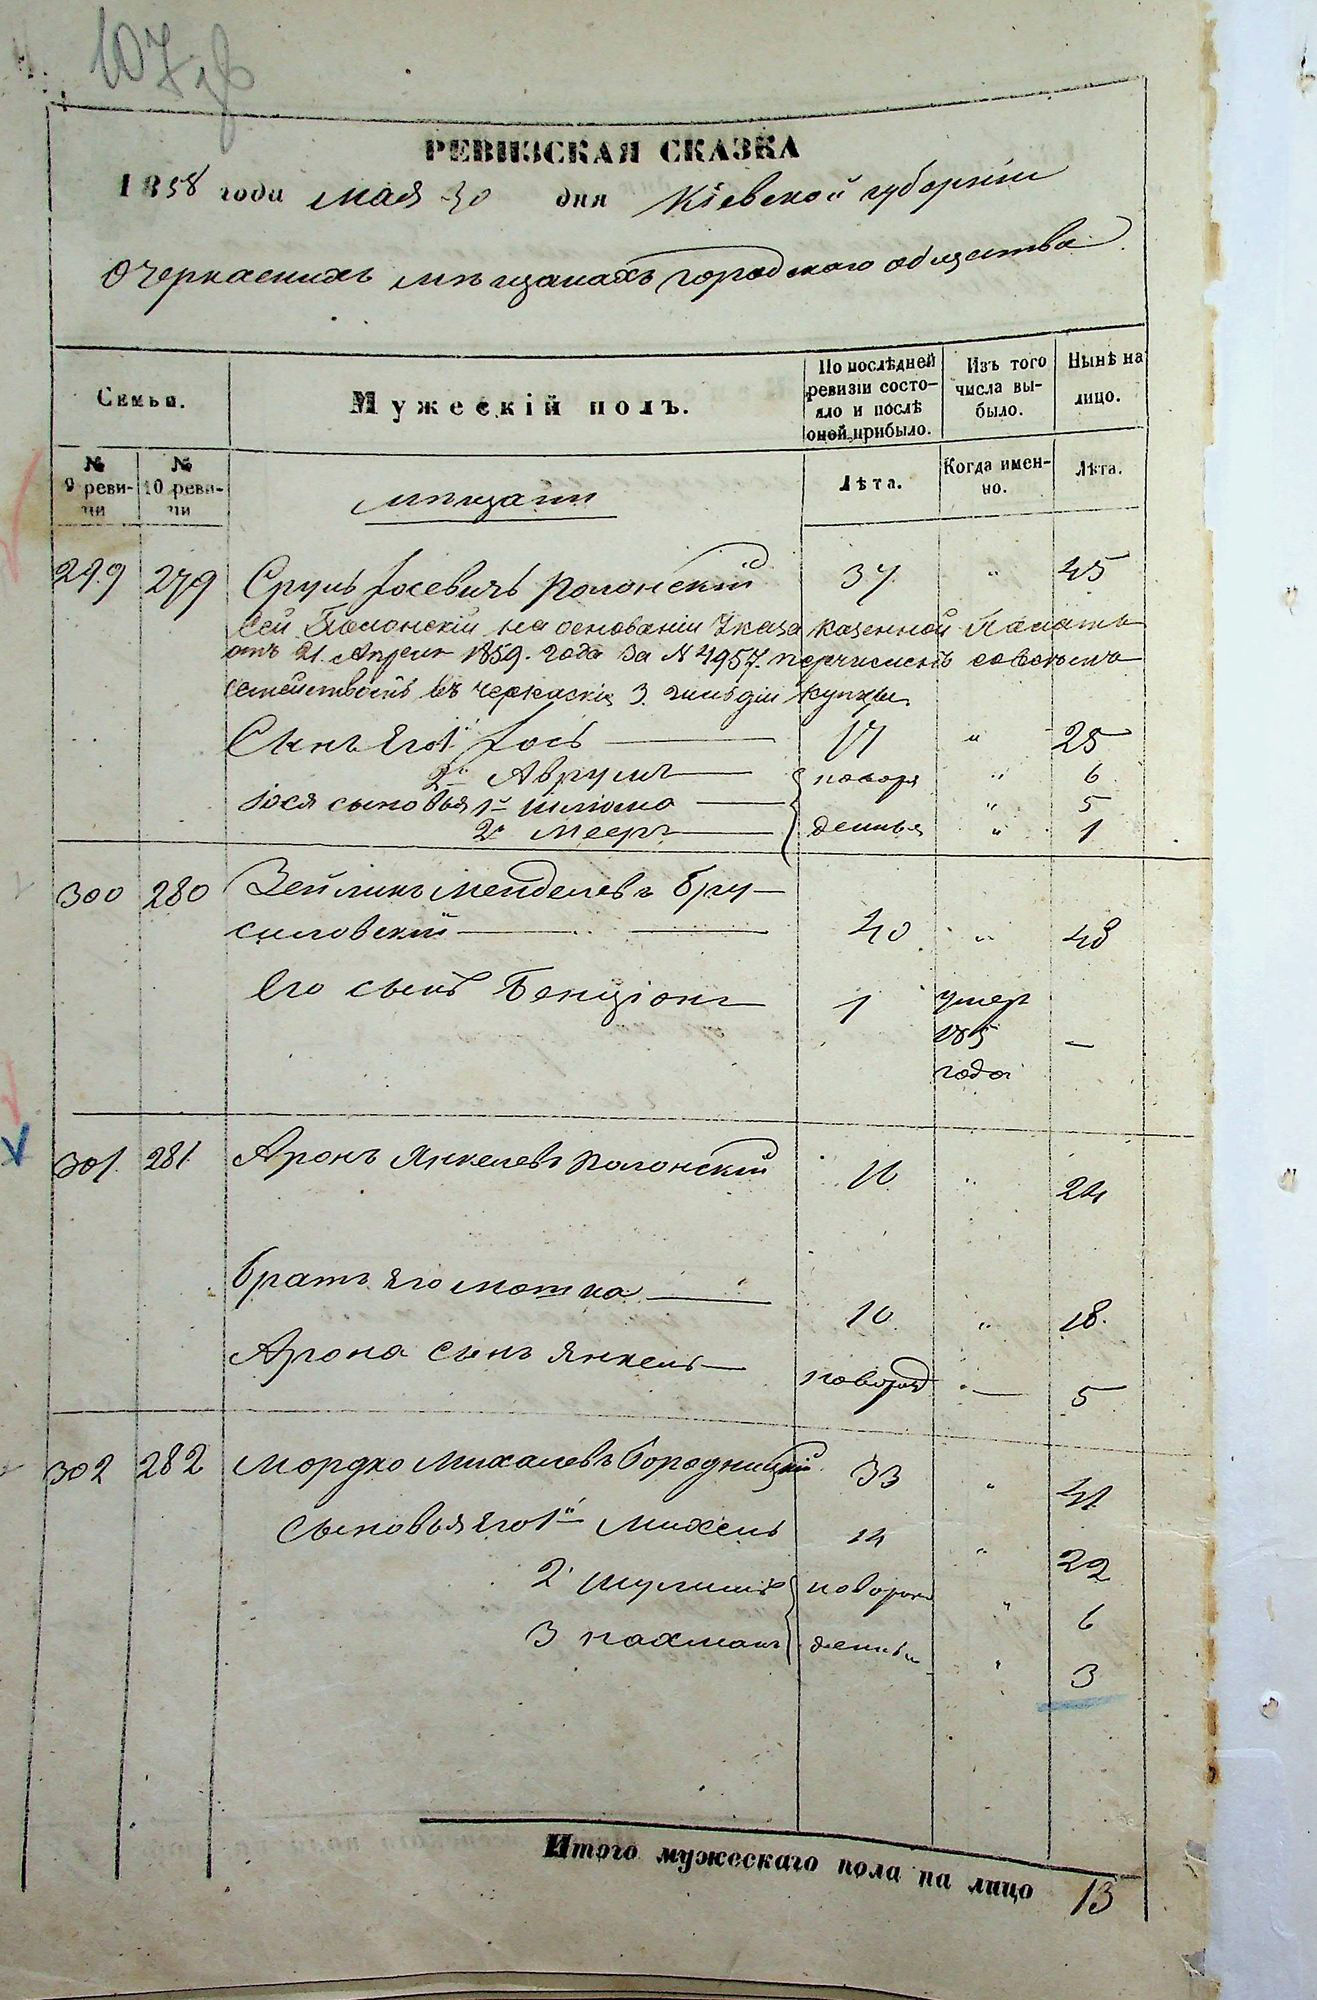 107
РЕВИЗСКАЯ СКАЗКА
1858 года мая 30 дня Кіевской губерніи
О Черкаскихъ мѣщанахъ городскаго общества
Семьи.
Мужескій полъ.
По послѣдней ревизіи состо-
яло и послѣ
оной прибыло.
Изъ того
числа вы-
было.
Нынѣ на
лицо.
№
9 реви-
зіи
№
10 реви-
зіи
мѣщани
Лѣта.
Когда имен-
но.
Лѣта.
299 279 Сруль Іосевичъ Полонскій 37 " 45
Сей Полонскій на основаніи Указа Казенной Палаты
отъ 21. Апреля 1859. года за N 4957. перечисленъ совсемъ
семействомъ въ черкаскіе 3. гильдіи купцы.
Сынъ его 1й Іось 17 " 25
2й Аврумъ новоро " 6
Іося сыновья 1й Шлiома " 5
2й Мееръ денныя " 1
300 280 Зейликъ Менделевъ Бру-
силовскій 40 " 48
Его сынъ Бенціонъ 1 умеръ
185
года —
301. 281. Аронъ Янкелевъ Полонскій 16 " 24
братъ его Мотка 10. " 18.
Арона сынъ Янкель новорожд — 5
302 282 Мордко Михалевъ Бородницкій 33 " 41
Сыновья его 1й Михель 14 " 22
2й Шулимъ новорож " 6
3 Нахманъ денные " 3
Итого мужескаго пола на лицо 13